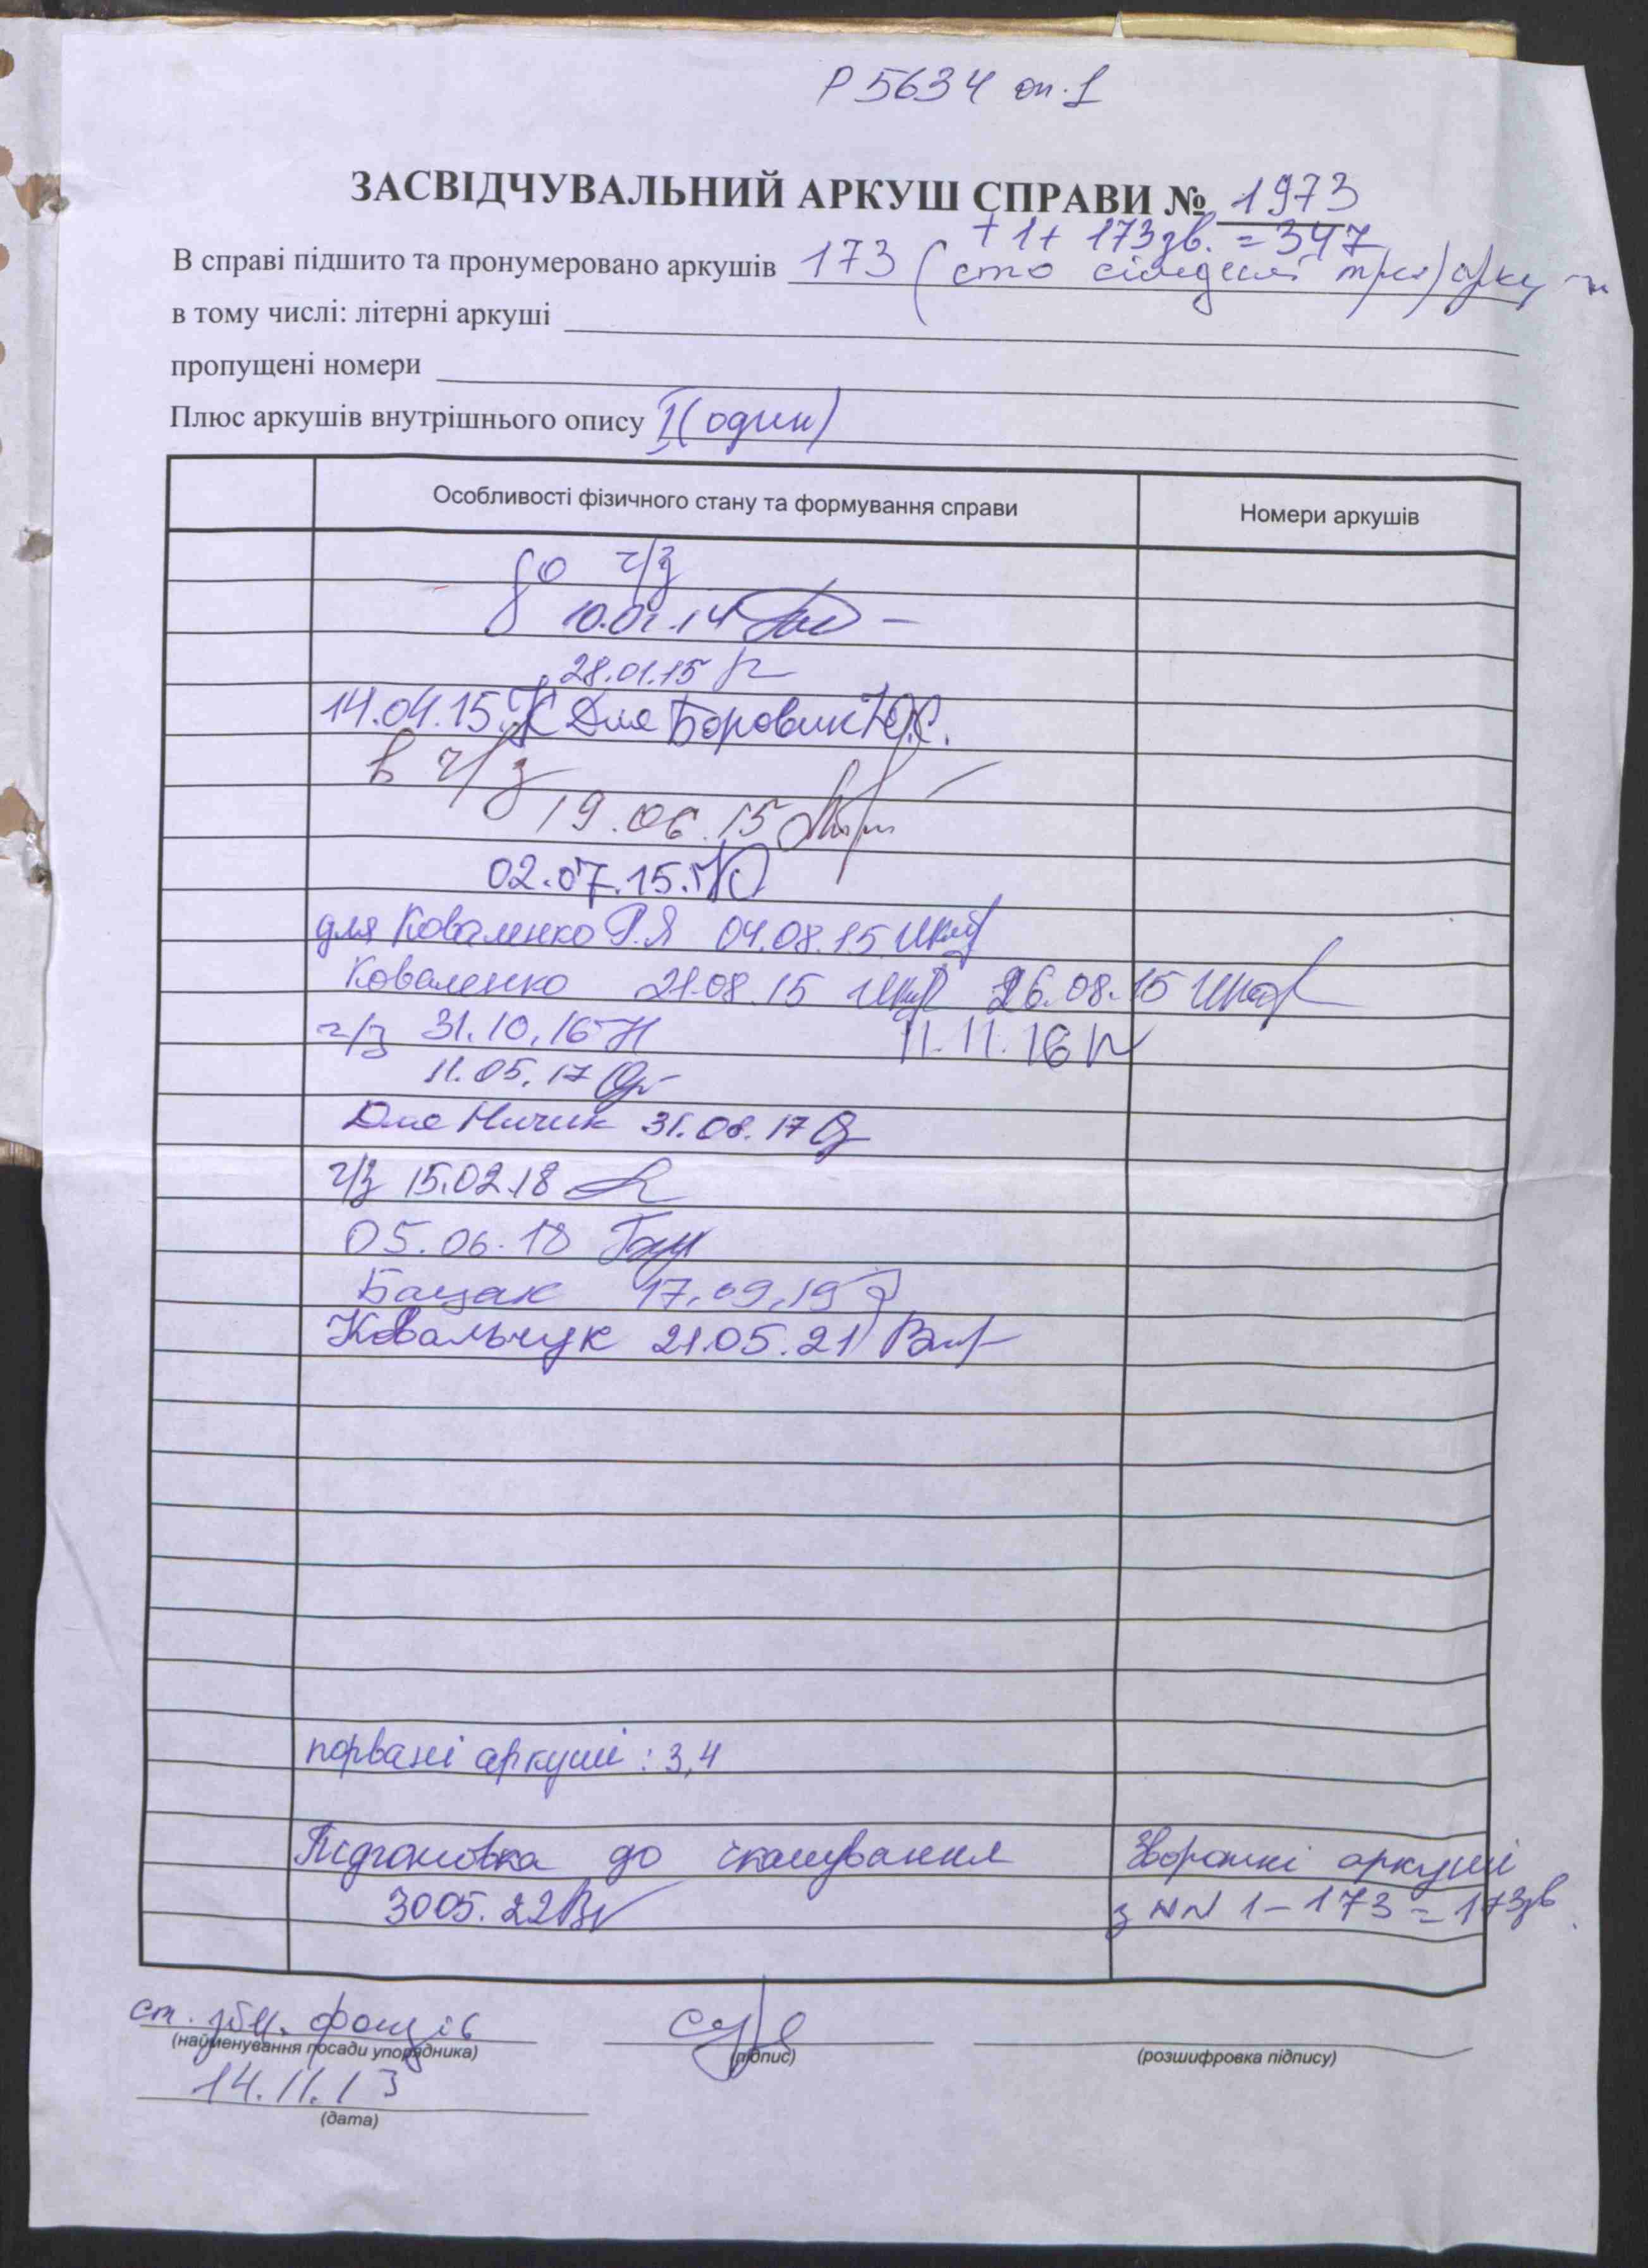 Р 5634 оп. 1
ЗАСВІДЧУВАЛЬНИЙ АРКУШ СПРАВИ № 1973
+ 1 + 173 зв. = 347
В справі підшито та пронумеровано аркушів 173 (сто сімдесят три) арку
в тому числі: літерні аркуші
пропущені номери
Плюс аркушів внутрішнього опису 1 (один)
Особливості фізичного стану та формування справи Номери аркушів
до ч/з
10.01.14
28.01.15
14.04.15. Для Боровик Ю.С.
в ч/з
19.06.15
02.07.15.
для Коваленко Р.Я 04.08.15
Коваленко 21.08.15 26.08.15
ч/з 31.10.16 11.11.16
11.05.17
Для Ничик 31.08.17
ч/з 15.02.18
05.06.18
Бацак 17.09.19
Ковальчук 21.05.21
порвані аркуші: 3,4
Підготовка до сканування Зворотні аркуші
3005.22 з NN 1-173 = 173зв
ст. зб. фондів
(найменування посади упорядника) (підпис) (розшифровка підпису)
14.11.13
(дата)